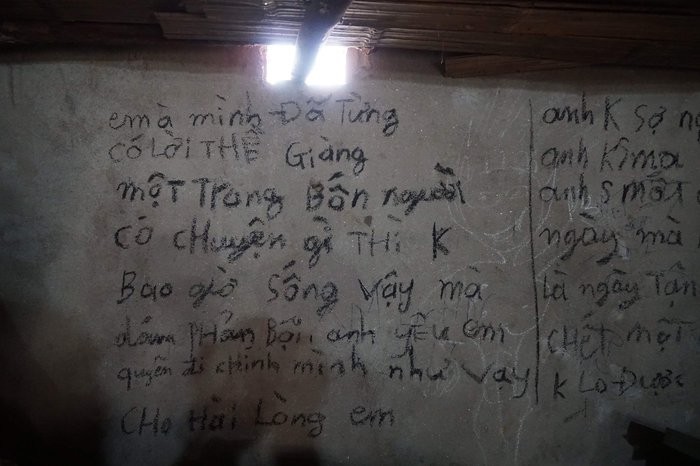 em à mình Đã Từng
CÓ LỜI THỀ Giàng
một Trong Bốn người
Có CHuyện gì THÌ K
Bao giờ Sống Vậy mà
dám PHản Bội anh yêu em
quyên đi chính mình như vậy
CHo Hài Lòng em
anh K Sợ
anh K ma
anh S mất
ngày mà
là ngày Tận
CHết một
K Lo Được